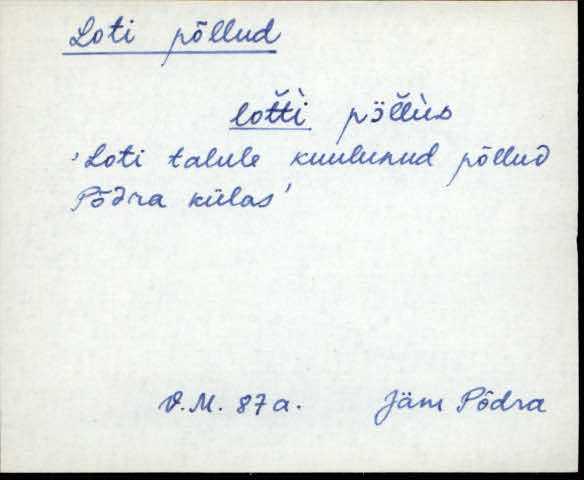 Loti põllud
lot̆t̆ì pö̭l̆l̆ùᴅ
'Loti talule kuulunud põllud
Põdra külas'
V.M. 87a. Jäm Põdra